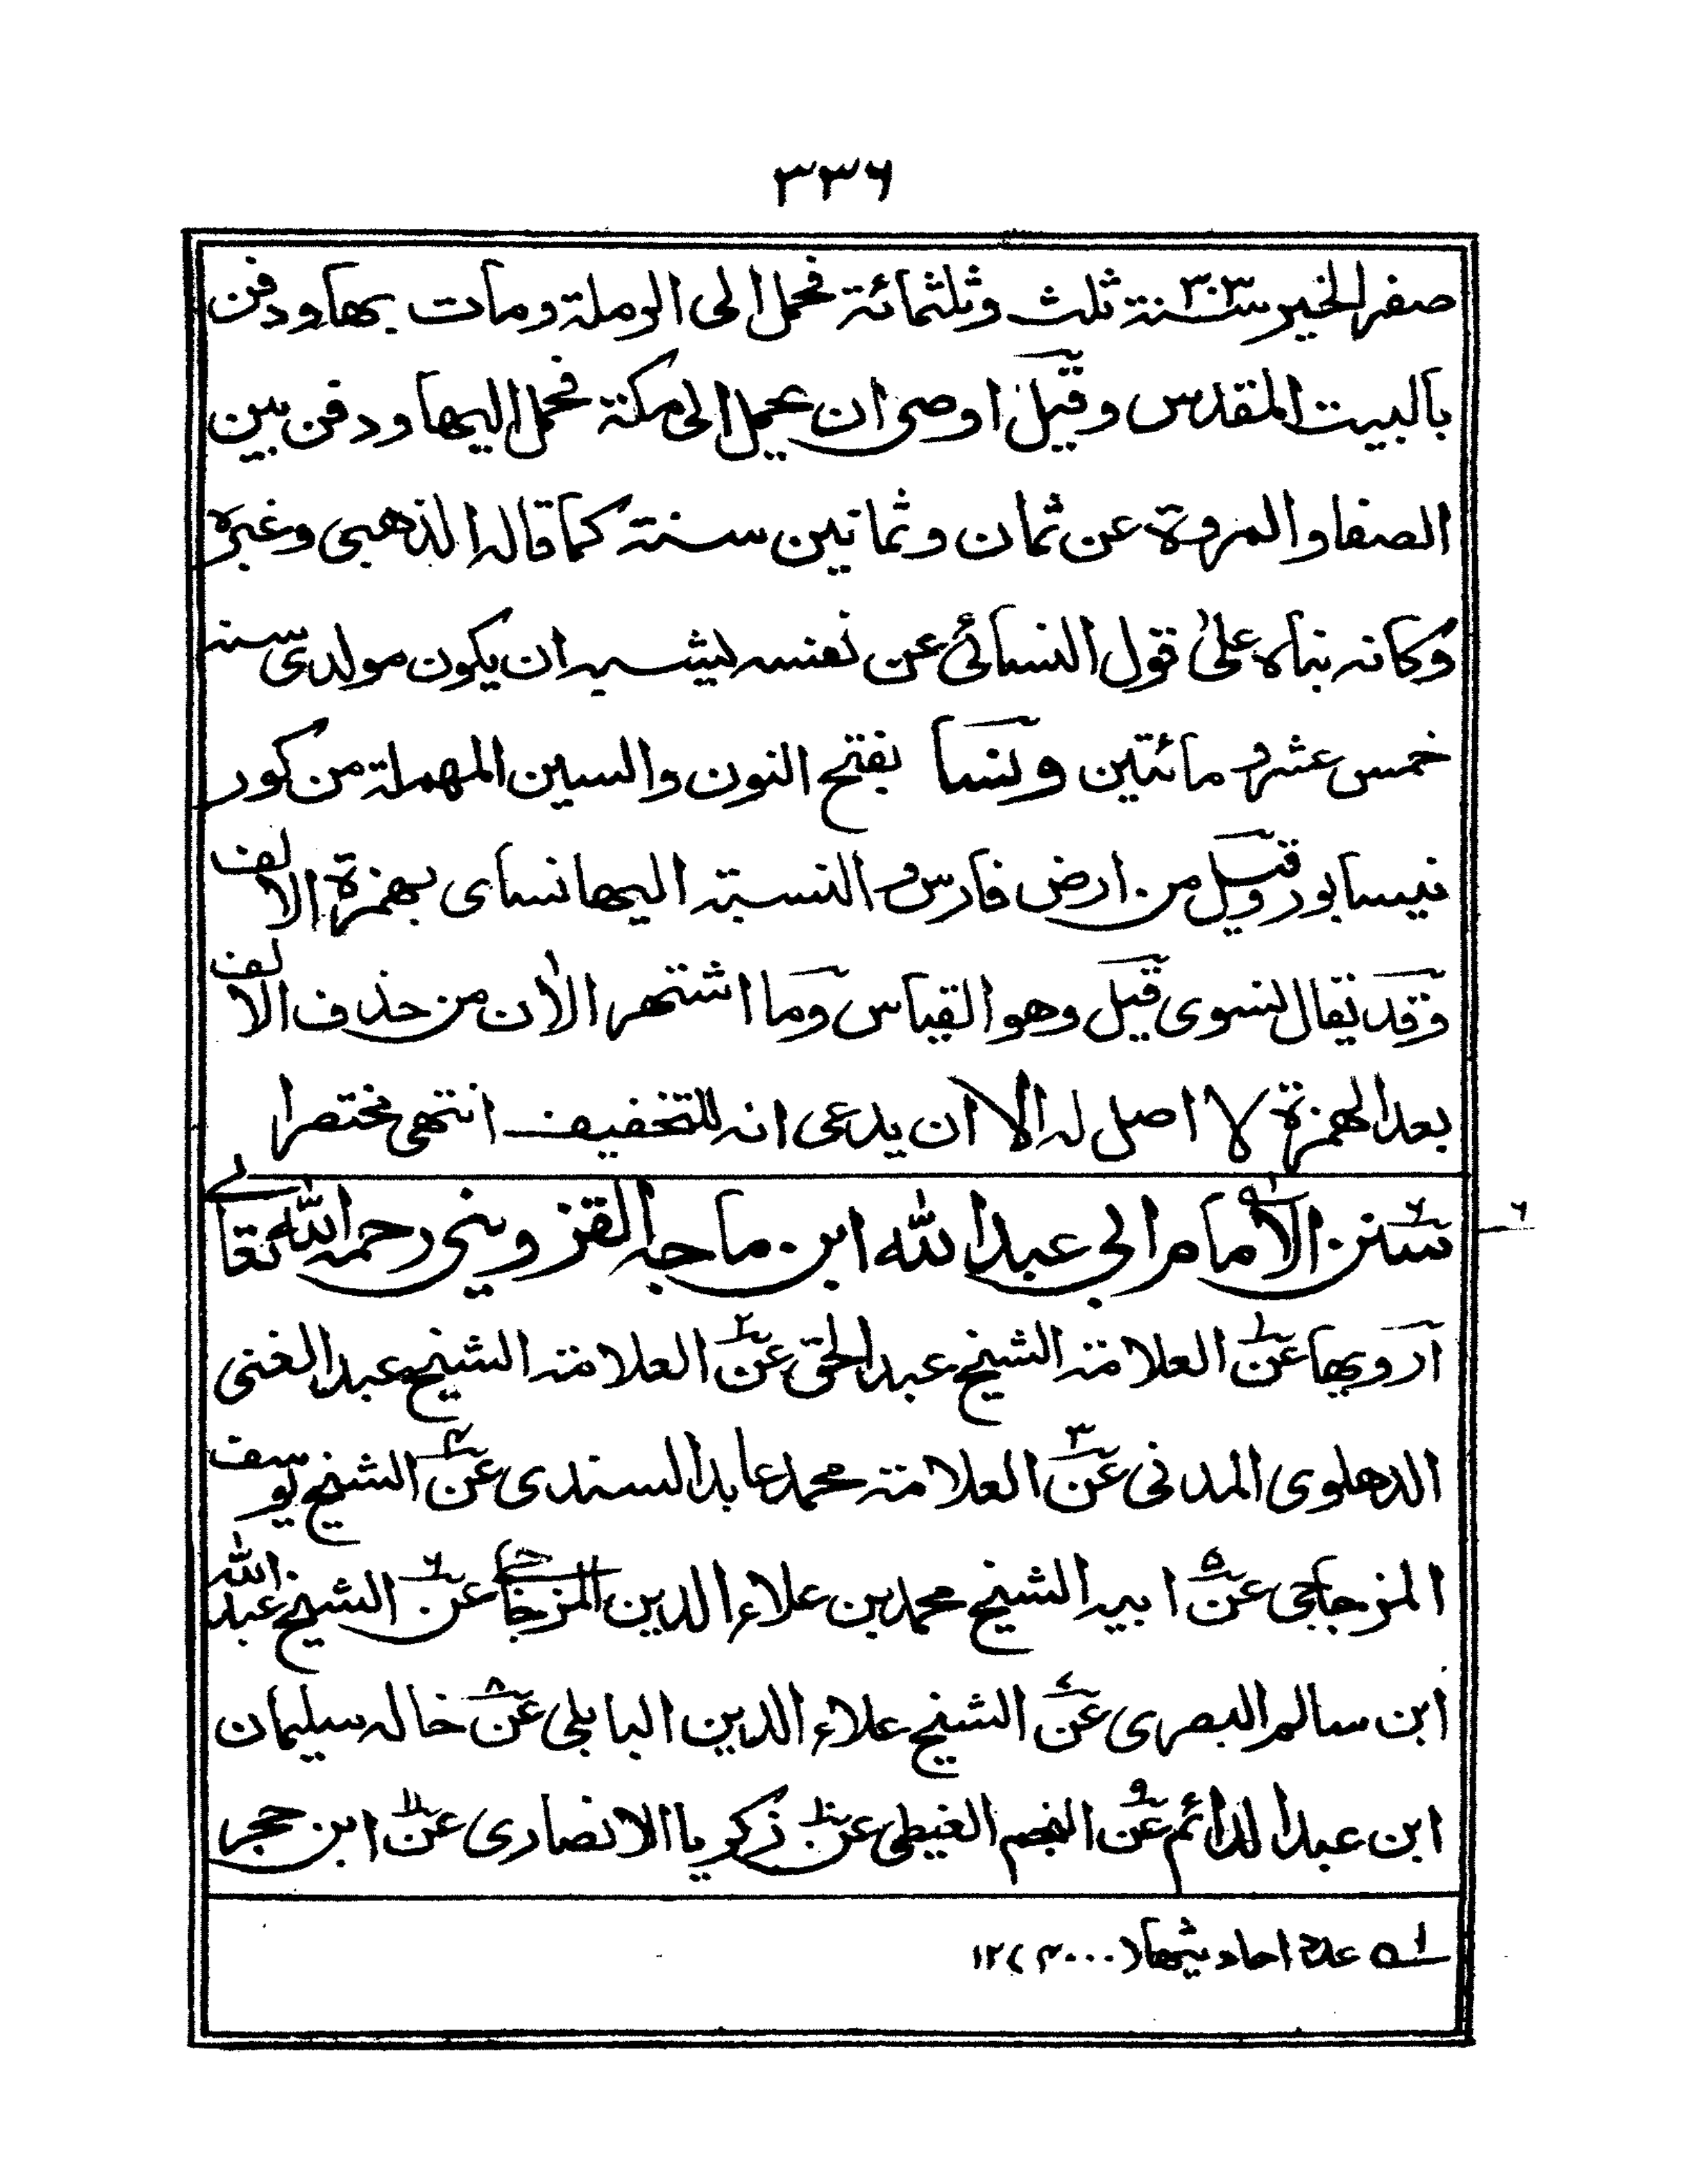 ٣٣٦
صفر الخير سنة ٣٠٣ ثلث وثلثمائة فحمل الى الرملة ومات بها ودفن
بالبيت المقدس وقيل اوصى ان يحمل الى مكة فحمل اليها ودفن بين
الصفا والمروة عن ثمان وثمانين سنة كما قاله الذهبى وغيره
وكانه بناه على قول النسائى عن نفسه يشبه ان يكون مولدى سنة
خمس عشر و مائتين ونسا بفتح النون والسين المهملة من كور
نيسابور وقيل من ارض فارس و النسبة اليها نساى بهمزة الالف
وقد يقال نسوى قيل وهو القياس وما اشتهر الأن من حذف الالف
بعد الهمزة لا اصل له الا ان يدعى انه للتخفيف انتهى مختصرا
٦ سنن الامام ابى عبد الله ابن ماجه القزوينى رحمه الله تعالے ٦
ارويها عن ١ العلامة الشيخ عبد الحق عن ٢ العلامة الشيخ عبد الغنى
الدهلوى المدنى عن ٣ العلامة محمد عابد السندى عن ٤ الشيخ يوسف
المزجاجى عن ٥ ابيه الشيخ محمد بن علاء الدين المزجاجے عن ٦ الشيخ عبد الله
ابن سالم البصرى عن ٧ الشيخ علاء الدين البابلى عن ٨ خاله سليمان
ابن عبد الدائم عن ٩ النجم الغيطى عن ١٠ زكريا الانصارى عن ١١ ابن حجر
١ه عدة احاديثها (٤٠٠٠) ١٢